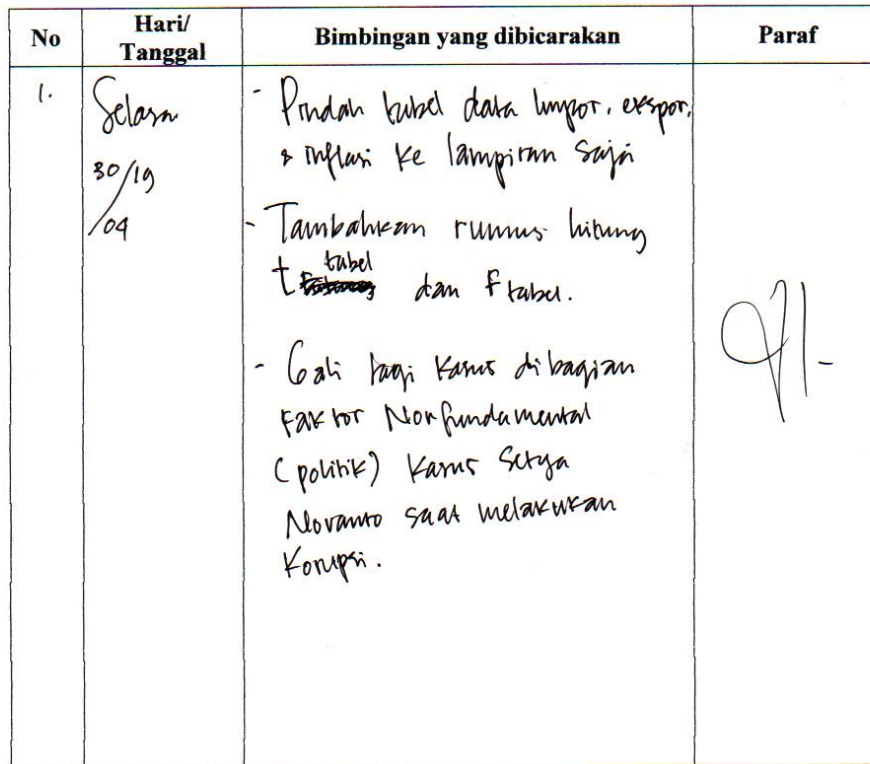 No Hari/ Tanggal Bimbingan yang dibicarakan Paraf
1. Selasa 30/19/04
- Pindah tabel data impor, ekspor,
& inflasi ke lampiran saja
- Tambahkan rumus hitung
t tabel dan F tabel.
- Gali lagi kasus dibagian
Faktor Nonfundamental
(politik) Kasus Setya
Novanto saat melakukan
Korupsi.